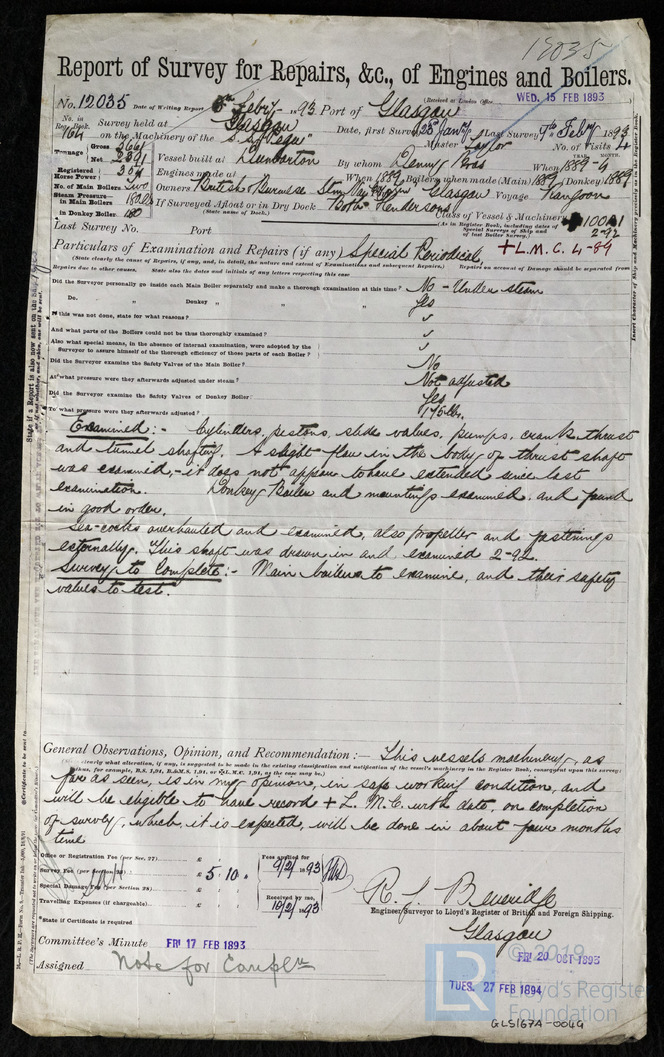 12035
Report of Survey for Repairs, &c., of Engines and Boilers.
(Received at London Office WED. 15 FEB 1893
No. 12035 Date of Writing Report Feby 1893 Port of Glasgow
No. in Reg. Book. 164 Survey held at Glasgow Date, first Survey 25 Jany Last Survey 9th Feby 1893
on the Machinery of the S.S. "Pegu" Master Taylor No. of Visits 4
Tonnage Gross Net Vessel built at Dumbarton By whom Denny Bros When 1889-4
YEAR. MONTH.
Registered Horse Power Engines made at When 1889 Boilers, when made (Main) 1889 (Donkey) 1889
No. of Main Boilers Two Owners British & Burmese Stm Nav Glasgow Voyage Rangoon
Steam Pressure in Main Boilers If Surveyed Afloat or in Dry Dock Both Hendersons
(State name of Dock.)
in Donkey Boiler Class of Vessel & Machinery 100A1
(As in Register Book, including dates of Special Surveys of Ship and of last Boiler Survey.) 2-92
Last Survey No. Port + L.M.C. 4-89
Particulars of Examination and Repairs (if any) Special Periodical
(State clearly the cause of Repairs, if any, and, in detail, the nature and extent of Examinations and subsequent Repairs.) Repairs on account of Damage should be separated from
Repairs due to other causes. State also the dates and initials of any letters respecting this case
Did the Surveyor personally go inside each Main Boiler separately and make a thorough examination at this time? No - Under steam
Do. " Donkey " " " " Yes
If this was not done, state for what reasons?
And what parts of the Boilers could not be thus thoroughly examined?
Also what special means, in the absence of internal examination, were adopted by the
Surveyor to assure himself of the thorough efficiency of those parts of each Boiler?
Did the Surveyor examine the Safety Valves of the Main Boiler? No
At what pressure were they afterwards adjusted under steam? Not adjusted
Did the Surveyor examine the Safety Valves of Donkey Boiler? Yes
To what pressure were they afterwards adjusted? 175 lbs.
Examined :- Cylinders, pistons, slide valves, pumps, crank, thrust
and tunnel shafting. A slight flaw in the body of thrust shaft
was examined, - it does not appear to have extended since last
examination. Donkey Boiler and mountings examined, and found
in good order.
Sea-cocks overhauled and examined, also propeller and fastenings
externally. This shaft was drawn in and examined 2-92.
Survey to Complete :- Main boilers to examine, and their safety
valves to test.
General Observations, Opinion, and Recommendation :— This vessels machinery, as
(State clearly what alteration, if any, is suggested to be made in the existing classification and notification of the vessel's machinery in the Register Book, consequent upon this survey:
far as seen, is in my opinion, in safe working condition, and
will be eligible to have record + L.M.C. with date, on completion
of survey, which, it is expected, will be done in about four months
time
Office or Registration Fee (per Sec. 27) £ Fees applied for
Survey Fee (per Section 28) £ 5 . 10 . 9/2/ 1893
Special Damage Fee (per Section 28) £ Received by me,
Travelling Expenses (if chargeable) £ 10/2/ 1893
*State if Certificate is required
R. J. Beveridge
Engineer Surveyor to Lloyd's Register of British and Foreign Shipping.
Glasgow
Committee's Minute FRI 17 FEB 1893
FRI 20 OCT 1893
Assigned Note for Compln
TUES. 27 FEB 1894
© 2019
LR Lloyd's Register
Foundation
GLS167A-0049